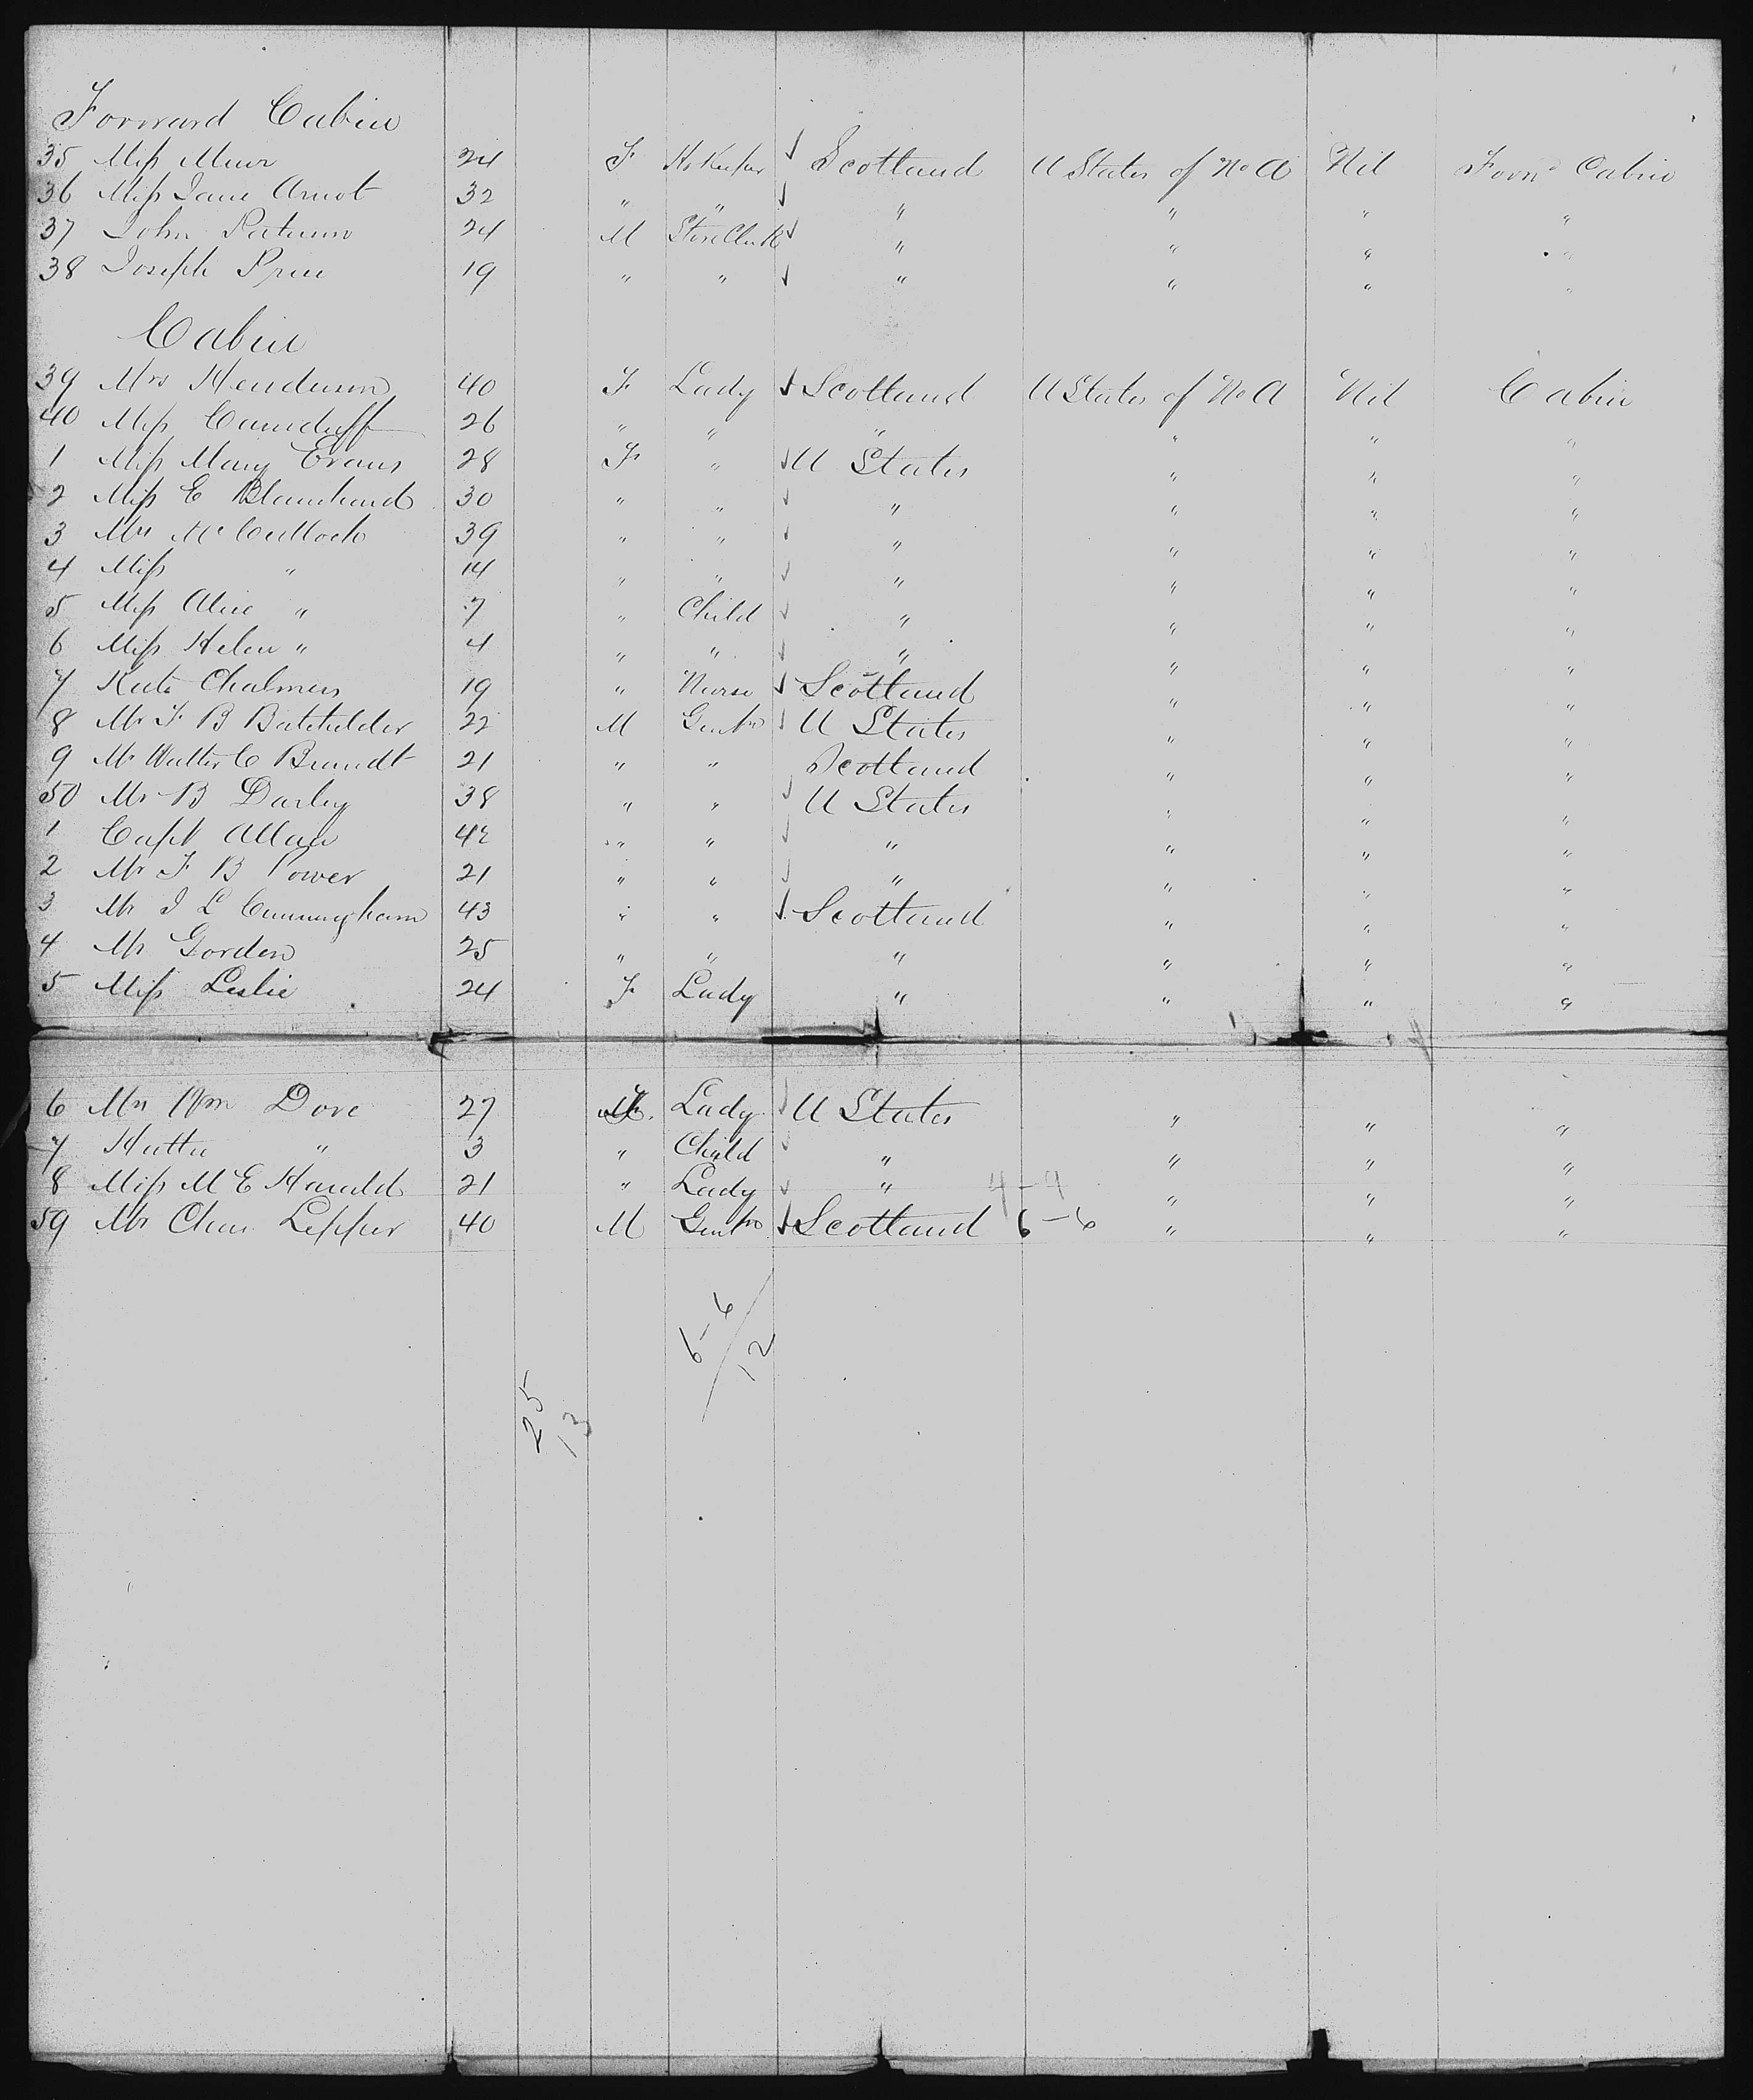 Forward Cabin
35 Miss Muir 24 F Hs Keeper Scotland U States of No A Nil Forwd Cabin
36 Miss Jane Arnot 32 " " " " " "
37 John Paterson 24 M Store Clerk " " " "
38 Joseph Price 19 " " " " " "
Cabin
39 Mrs Henderson 40 F Lady Scotland U States of No A Nil Cabin
40 Miss Carnduff 26 " " " " " "
1 Miss Mary Evans 28 F " U States " " "
2 Miss E Blanchard 30 " " " " " "
3 Mrs McCulloch 39 " " " " " "
4 Miss " 14 " " " " " "
5 Miss Alice " 7 " Child " " " "
6 Miss Helen " 4 " " " " " "
7 Kate Chalmers 19 " Nurse Scotland " " "
8 Mr F B Batchelder 22 M Gentn U States " " "
9 Mr Walter C Brandt 21 " " Scotland " " "
50 Mr B Darley 38 " " U States " " "
1 Capt Allan 42 " " " " " "
2 Mr F B Power 21 " " " " " "
3 Mr J L Cunningham 43 " " Scotland " " "
4 Mr Gorden 25 " " " " " "
5 Miss Leslie 24 F Lady " " " "
6 Mrs Wm Dove 27 F Lady U States " " "
7 Hattie " 3 " Child " " " "
8 Miss M E Harald 21 " Lady " 4-9 " " "
59 Mr Chas Lepper 40 M Gentn Scotland 6-6 " " "
6-6/12
25
13